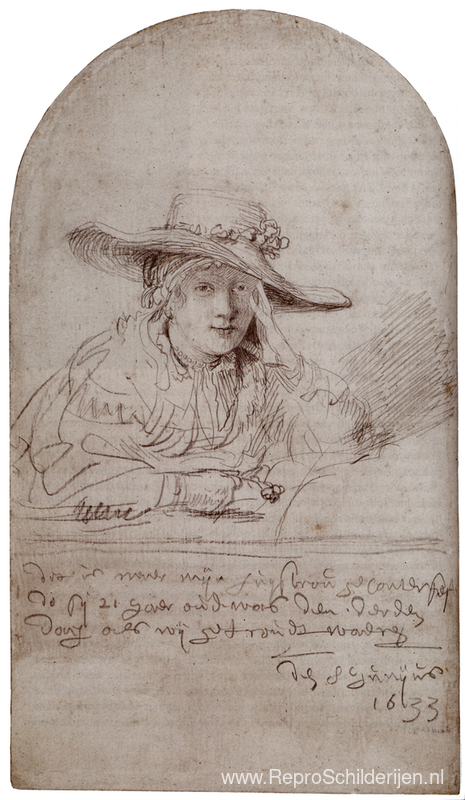 dit is naer mijn huijsvrou geconterfeit
do sij 21 jaer oud was den derden
dach als wij getroudt waeren
den 8 junijus
1633
www.ReproSchilderijen.nl